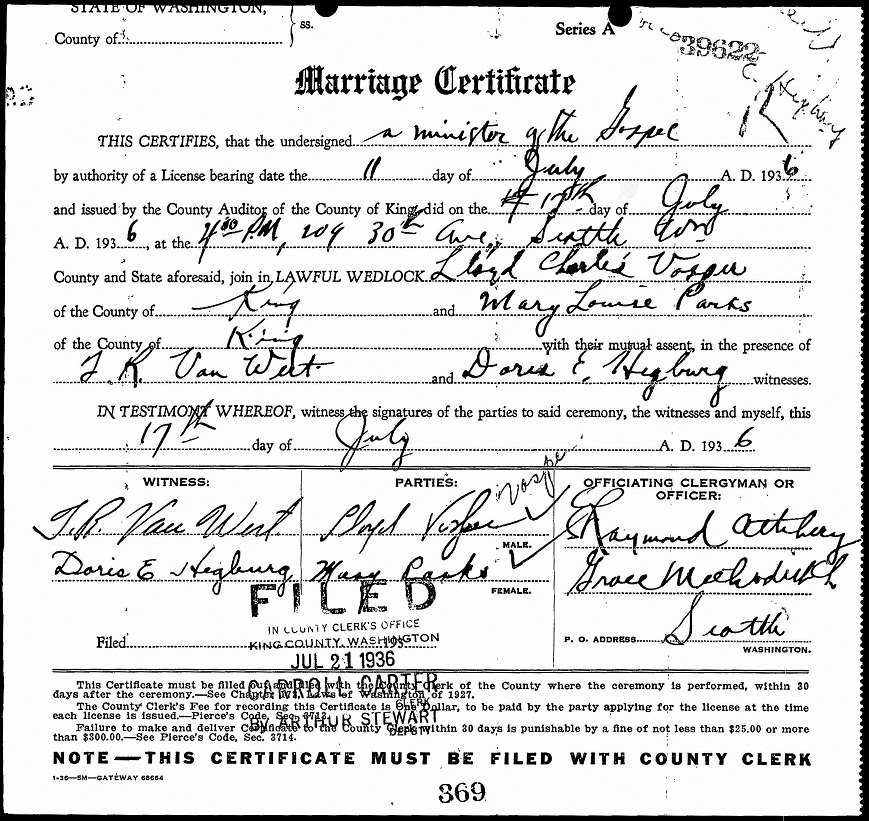 STATE OF WASHINGTON,
County of
ss.
Series A
39622
Marriage Certificate
THIS CERTIFIES, that the undersigned a minister of the Gospel
by authority of a License bearing date the 11 day of July A. D. 1936
and issued by the County Auditor of the County of King, did on the 17th day of July
A. D. 1936, at the 4:00 P.M., 209 30th Ave, Seattle Wn
County and State aforesaid, join in LAWFUL WEDLOCK Lloyd Charles Vosper
of the County of King and Mary Louise Parks
of the County of King with their mutual assent, in the presence of
T. R. Van West and Doris E. Hegburg witnesses.
IN TESTIMONY WHEREOF, witness the signatures of the parties to said ceremony, the witnesses and myself, this
17th day of July A. D. 1936
WITNESS:
T.R. Van West
Doris E Hegburg
PARTIES:
Vosper
Lloyd Vosper
MALE.
Mary Parks
FEMALE.
OFFICIATING CLERGYMAN OR
OFFICER:
Raymond Attebery
Grace Methodist Ch
P. O. ADDRESS Seattle
WASHINGTON.
Filed 193
FILED
IN COUNTY CLERK'S OFFICE
KING COUNTY, WASHINGTON
JUL 21 1936
CARROLL CARTER
CLERK
BY ARTHUR STEWART
DEPUTY
This Certificate must be filled out and filed with the County Clerk of the County where the ceremony is performed, within 30
days after the ceremony.—See Chapter Laws of Washington of 1927.
The County Clerk's Fee for recording this Certificate is One Dollar, to be paid by the party applying for the license at the time
each license is issued.—Pierce's Code, Sec.
Failure to make and deliver Certificate to the County Clerk within 30 days is punishable by a fine of not less than $25.00 or more
than $300.00.—See Pierce's Code, Sec. 3714.
NOTE—THIS CERTIFICATE MUST BE FILED WITH COUNTY CLERK
1-36—5M—GATEWAY 68664
369